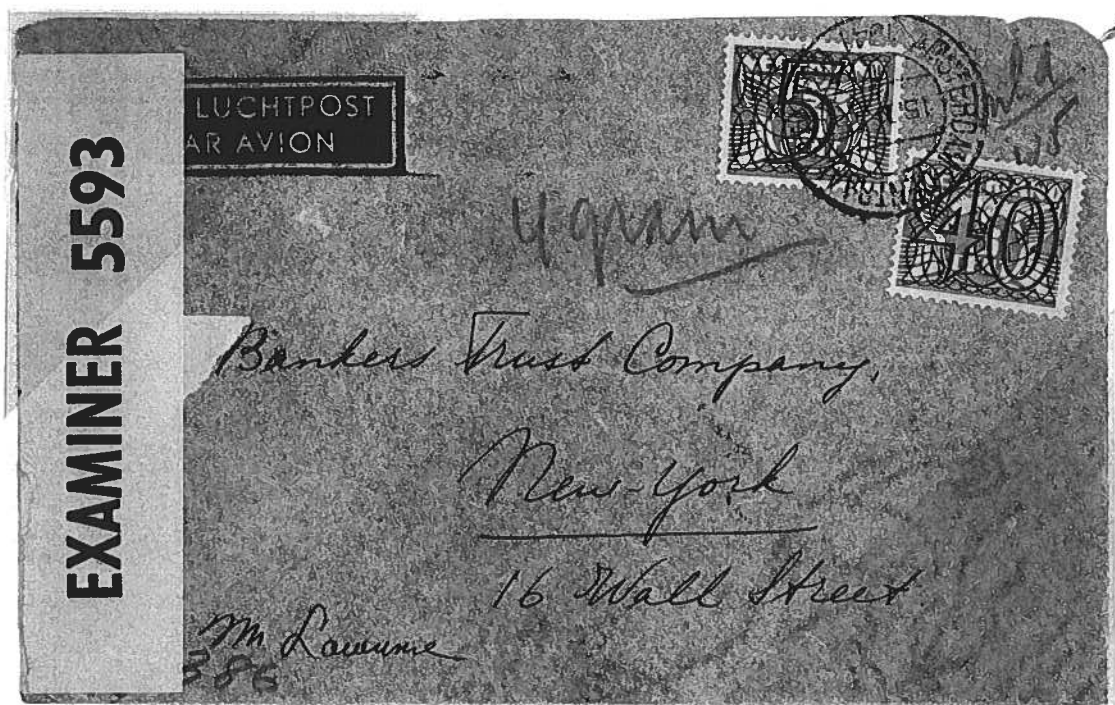 EXAMINER 5593
LUCHTPOST
AR AVION
5
40
AMSTERDAM
15
4 gram
Bankers Trust Company,
New-York
16 Wall Street
Mr.
386